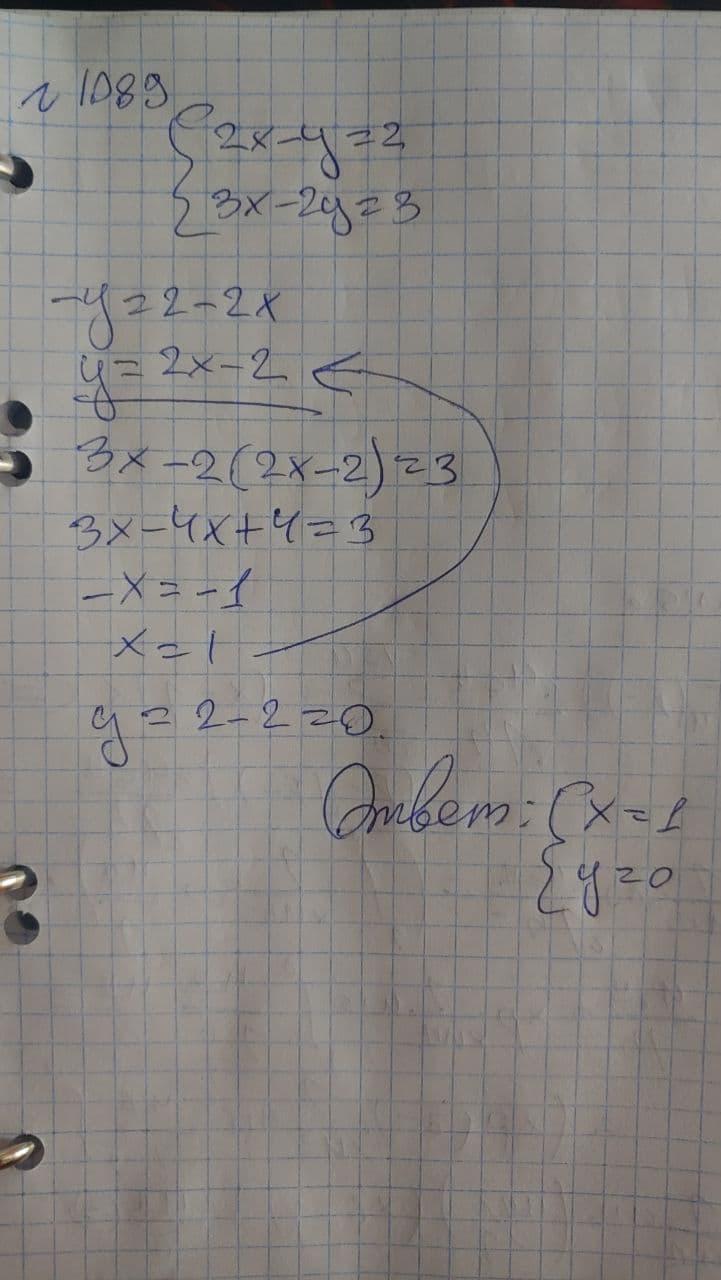 г 1089
{2x-y=2
{3x-2y=3
-y=2-2x
y=2x-2
3x-2(2x-2)=3
3x-4x+4=3
-x=-1
x=1
y=2-2=0.
Ответ: {x=1
{y=0